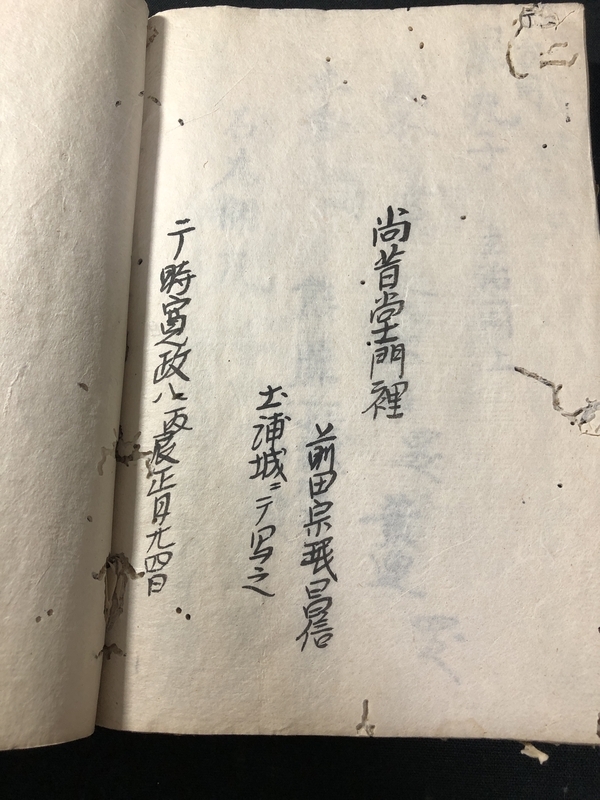 尚昔堂門裡
前田宗珉昌信
土浦城ニ于写之
于時寛政八丙辰正月廿四日